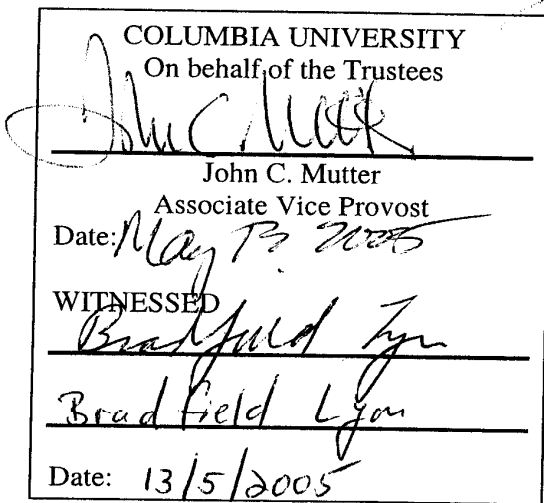 COLUMBIA UNIVERSITY
On behalf of the Trustees
John C. Mutter
John C. Mutter
Associate Vice Provost
Date: May 13 2005
WITNESSED
Bradfield Lyon
Bradfield Lyon
Date: 13/5/2005